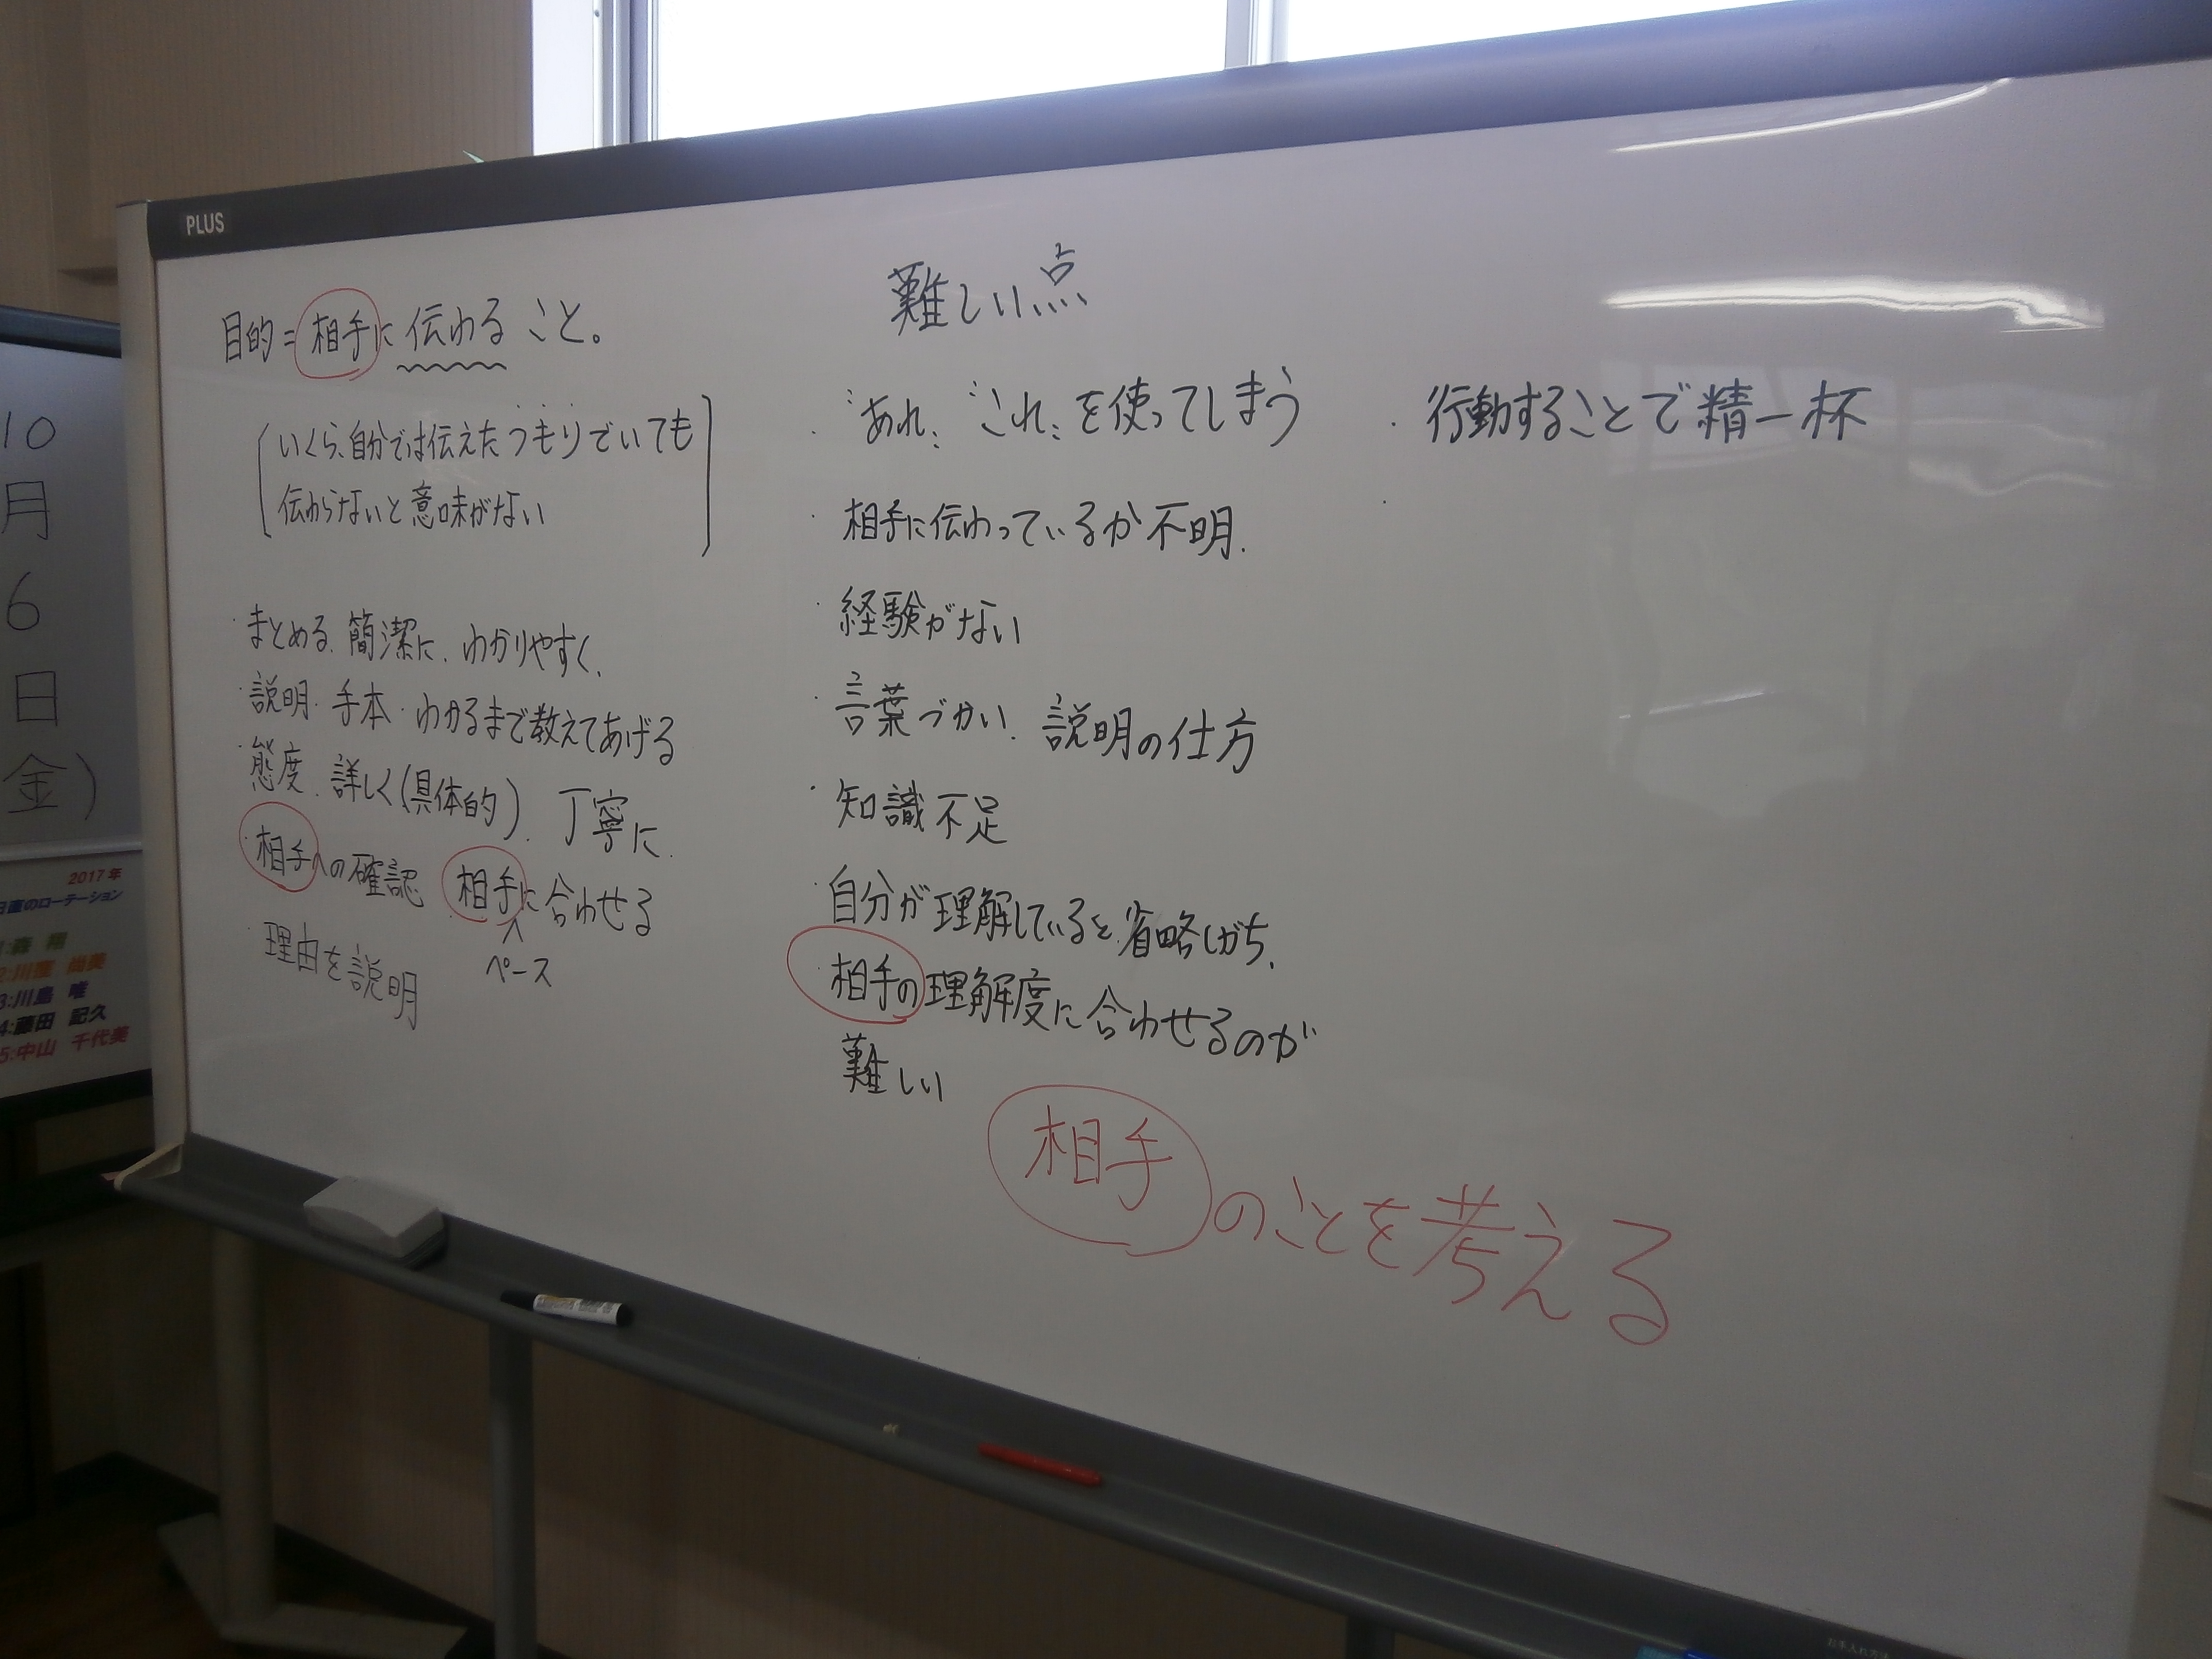 PLUS
目的=相手に伝わること。
いくら、自分では伝えたつもりでいても
伝わらないと意味がない
・まとめる、簡潔に、わかりやすく、
・説明・手本・わかるまで教えてあげる
・態度、詳しく(具体的)、丁寧に、
・相手への確認 相手に合わせる
ペース
・理由を説明
難しい点
・"あれ"、"これ"を使ってしまう
・相手に伝わっているか不明、
・経験がない
・言葉づかい、説明の仕方
・知識不足
・自分が理解していると省略しがち、
・相手の理解度に合わせるのが
難しい
・行動することで精一杯
・
相手のことを考える
10
月
6
日
金)
2017年
日直のローテーション
2:川窪 尚美
3:川島 唯
4:藤田 記久
5:中山 千代美